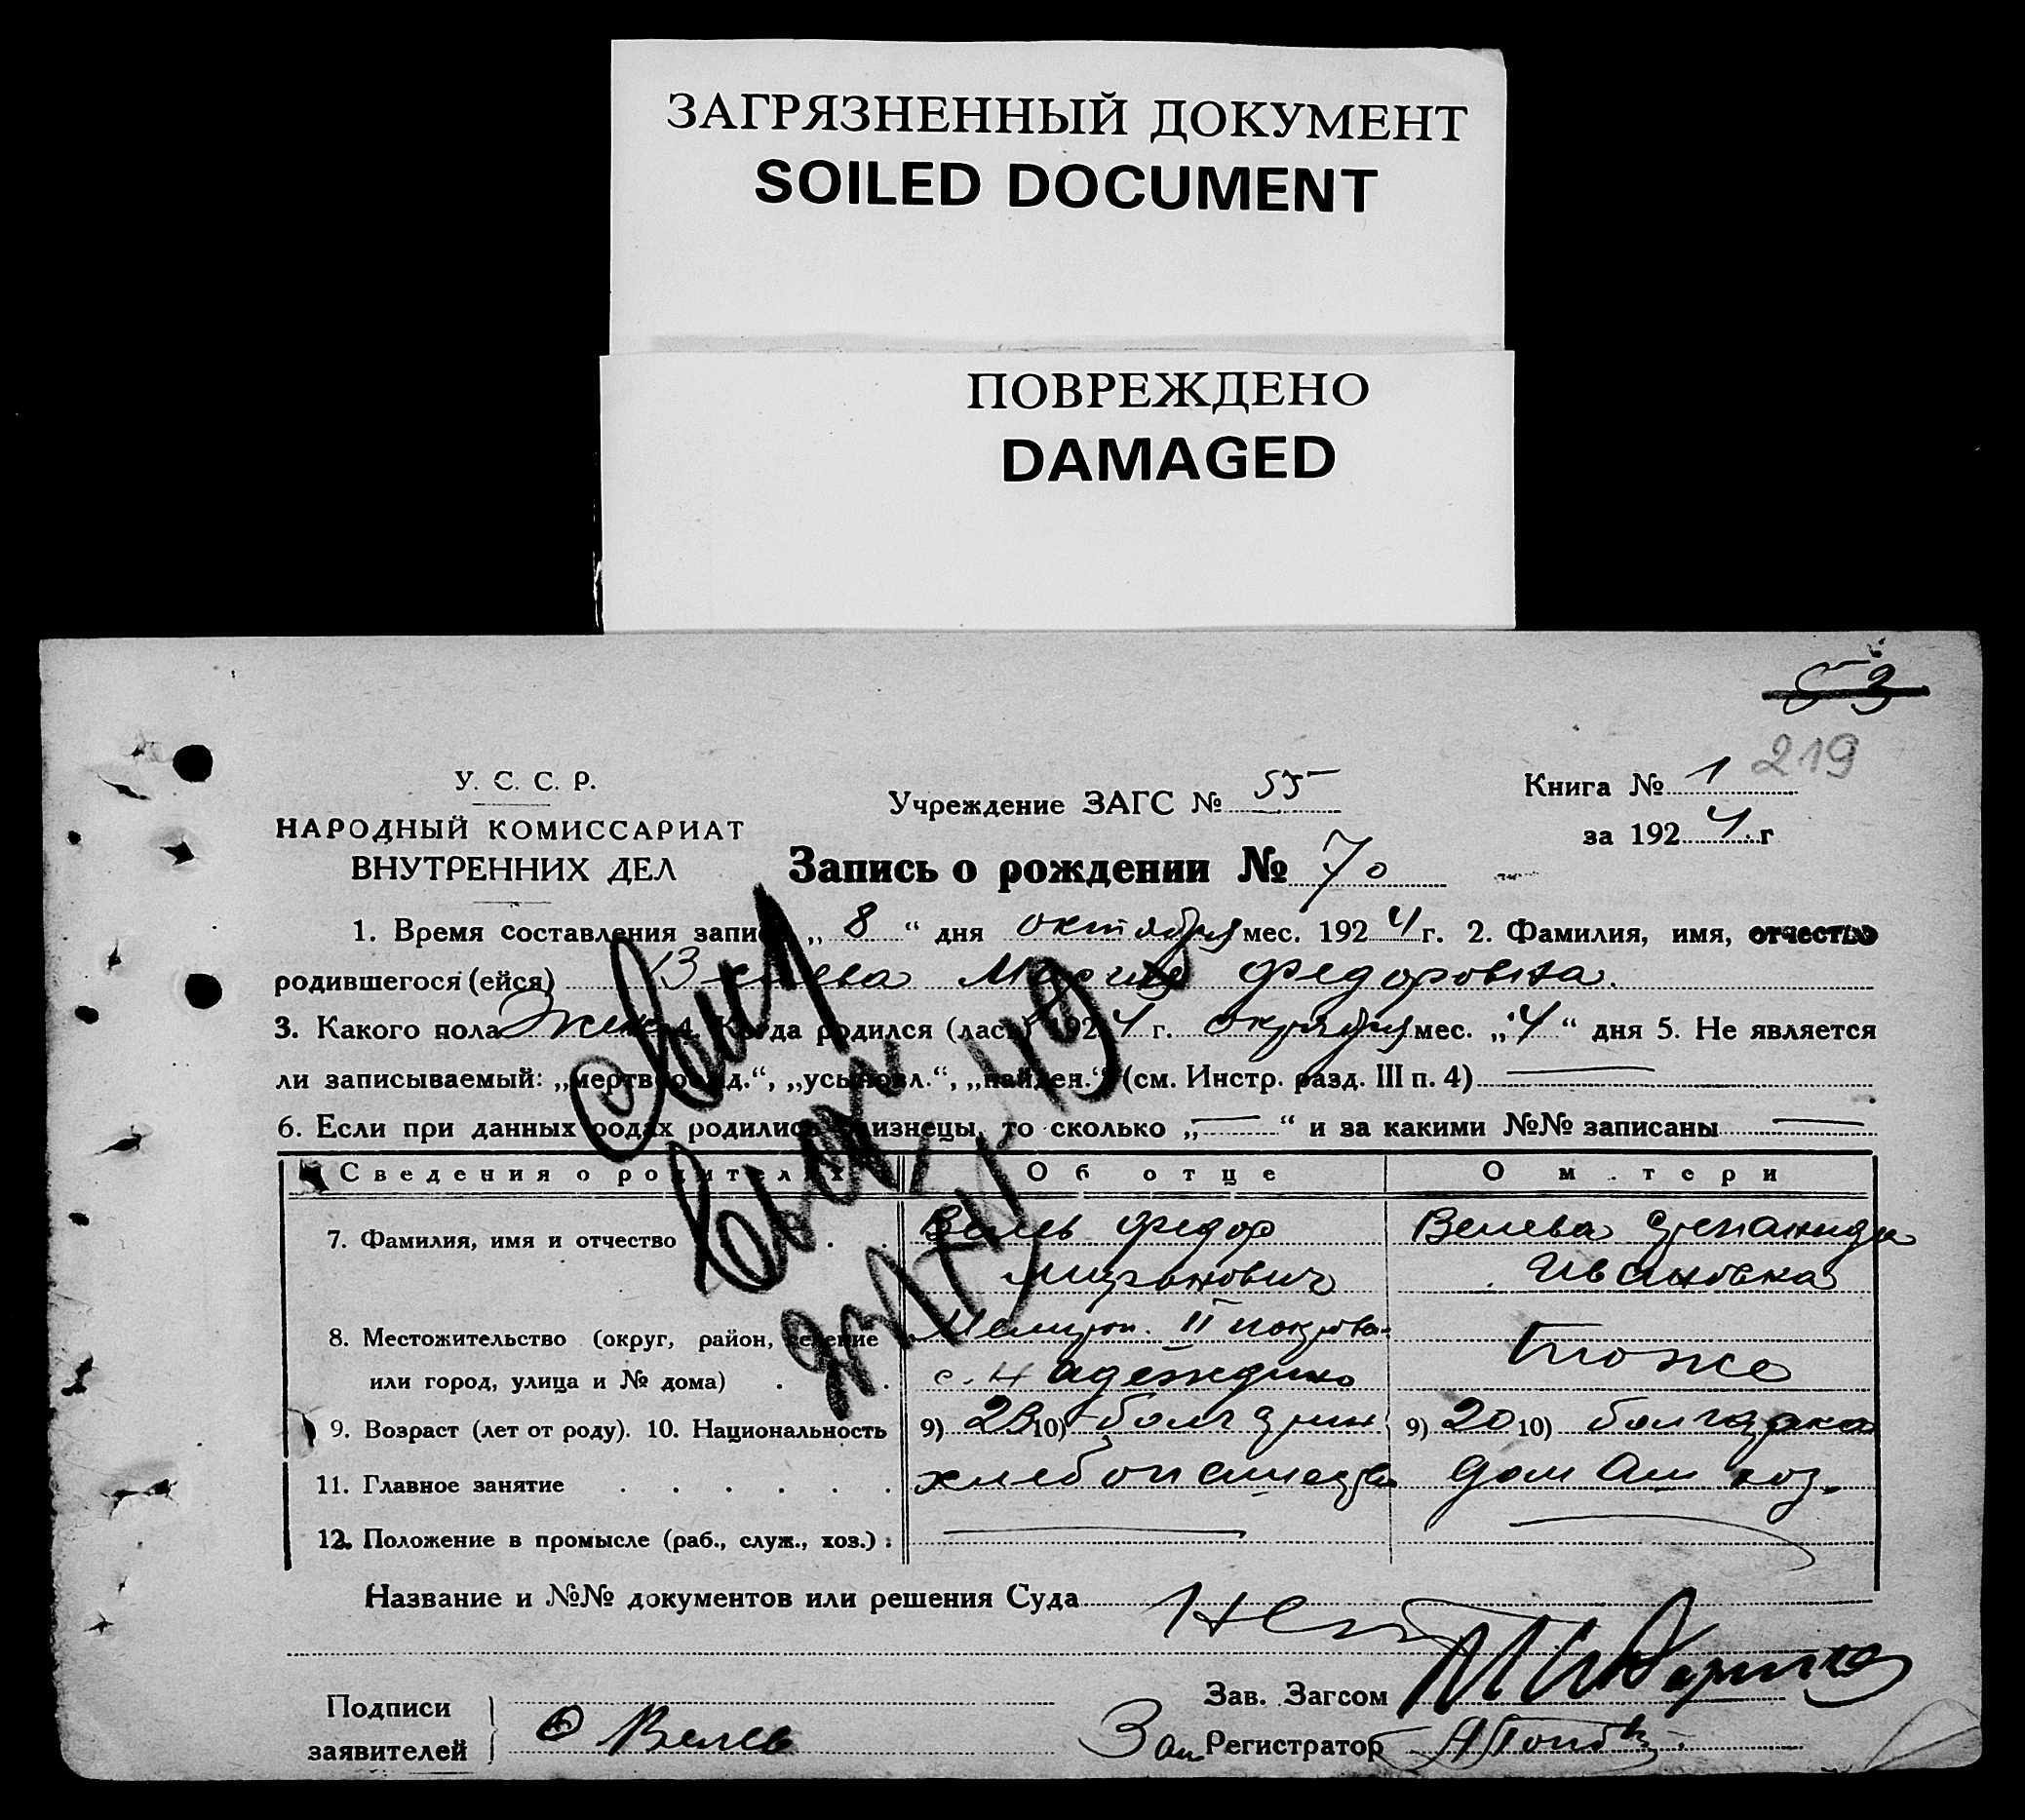 ЗАГРЯЗНЕННЫЙ ДОКУМЕНТ
SOILED DOCUMENT
ПОВРЕЖДЕНО
DAMAGED
53
219
У. С. С. Р.
НАРОДНЫЙ КОМИССАРИАТ
ВНУТРЕННИХ ДЕЛ
Учреждение ЗАГС № 55
Книга № 1
за 1924 г
Запись о рождении № 70
1. Время составления записи „ 8 “ дня октября мес. 1924 г. 2. Фамилия, имя, отчество
родившегося (ейся) Велева Мария Федоровна.
3. Какого пола Жен 4. Когда родился (лась) 1924 г. октября мес. „4“ дня 5. Не является
ли записываемый: „мертворожд.“, „усыновл.“, „найден.“ (см. Инстр. разд. III п. 4)
6. Если при данных родах родились близнецы, то сколько „—“ и за какими №№ записаны —
Сведения о родителях Об отце О м тери
7. Фамилия, имя и отчество Велев Федор Велева
Миронович Ивановна
8. Местожительство (округ, район, селение II покров. тоже
или город, улица и № дома) с. Надеждино
9. Возраст (лет от роду). 10. Национальность 9) 23 10) болгарин 9) 20 10) болгарка
11. Главное занятие хлебопашество дом хоз.
12. Положение в промысле (раб., служ., хоз.):
Название и №№ документов или решения Суда Нет
Подписи
заявителей Ф Велев
Зав. Загсом
Зам Регистратор